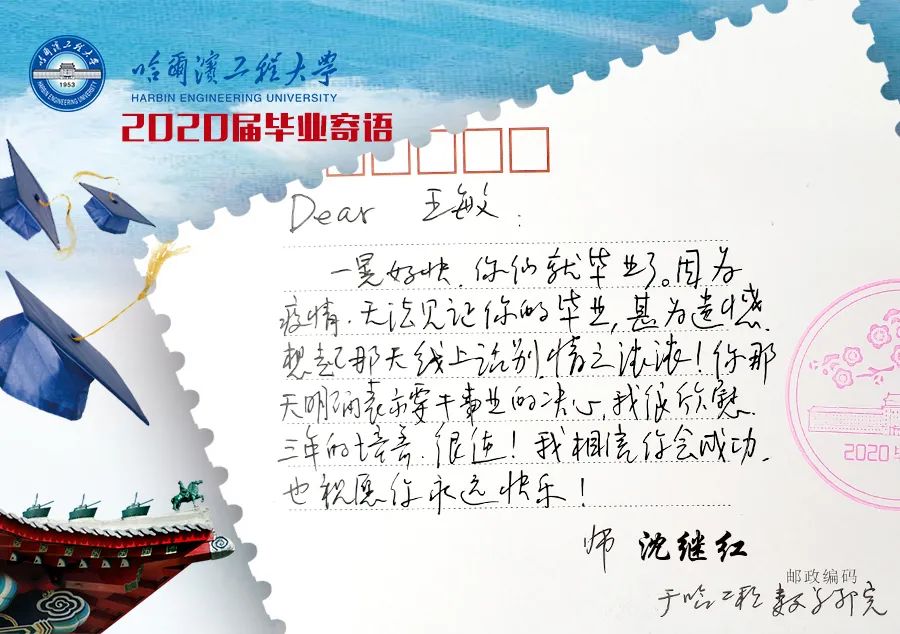 哈爾濱工程大學
1953
HARBIN ENGINEERING UNIVERSITY
哈爾濱工程大學
HARBIN ENGINEERING UNIVERSITY
2020届毕业寄语
Dear 王敏:
一晃好快,你们就毕业了。因为
疫情,无法见证你的毕业,甚为遗憾.
想起那天线上话别,情之浓浓!你那
天明确表示要干事业的决心,我很欣慰.
三年的培养,很值!我相信你会成功,
也祝愿你永远快乐!
师 沈继红
邮政编码
于哈工程数学所完
2020